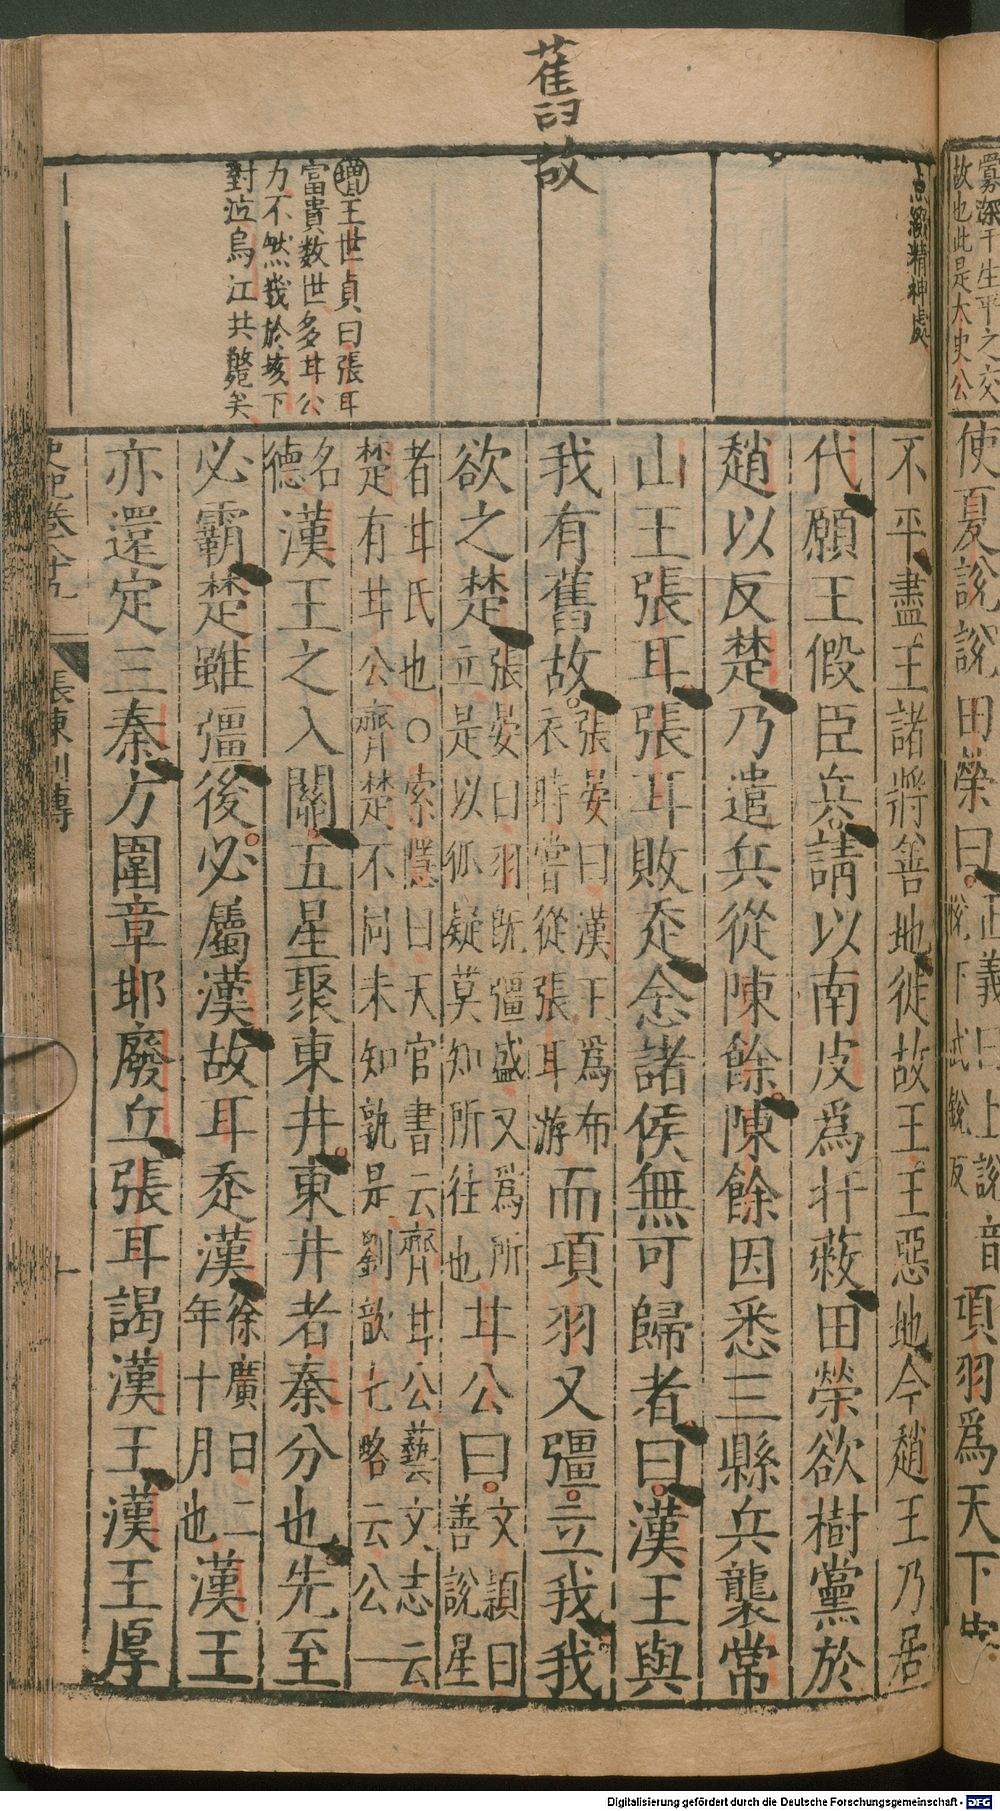 寡深于生平之交
故也此是太史公
使夏說說田榮曰正義曰上說音悅下式銳反項羽爲天下宰
舊
故
點綴精神處
增王世貞曰張耳
富貴數世多甘公
力不然幾於垓下
對泣烏江共斃矣
不平盡王諸將善地徙故王王惡地今趙王乃居
代願王假臣兵請以南皮爲扞蔽田榮欲樹黨於
趙以反楚乃遣兵從陳餘陳餘因悉三縣兵襲常
山王張耳張耳敗走念諸侯無可歸者曰漢王與
我有舊故張晏曰漢王爲布衣時嘗從張耳游而項羽又彊立我我
欲之楚張晏曰羽旣彊盛又爲所立是以狐疑莫知所往也甘公曰文穎曰善說星
者甘氏也○索隱曰天官書云齊甘公藝文志云
楚有甘公齊楚不同未知孰是劉歆七略云公一
名德漢王之入關五星聚東井東井者秦分也先至
必霸楚雖彊後必屬漢故耳走漢徐廣曰二年十月也漢王
亦還定三秦方圍章邯廢丘張耳謁漢王漢王厚
史記卷八十九 張陳列傳 十
Digitalisierung gefördert durch die Deutsche Forschungsgemeinschaft - DFG